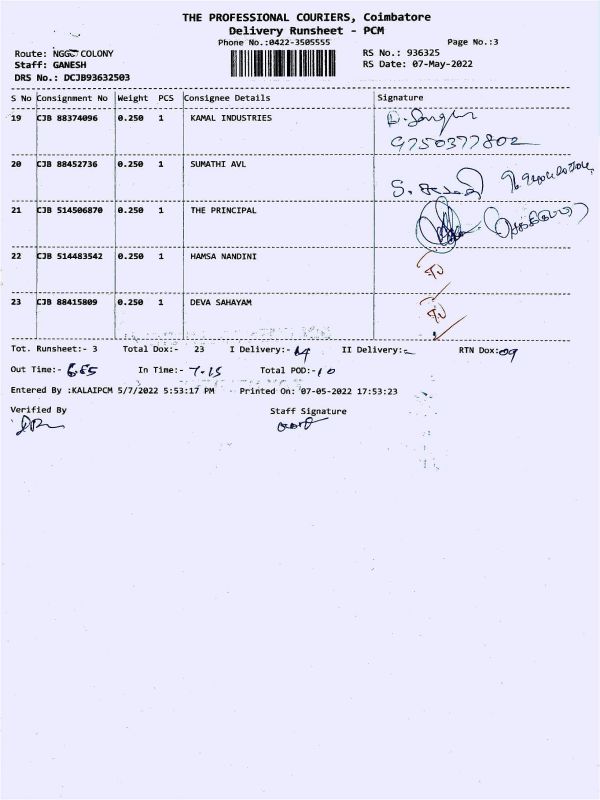 THE PROFESSIONAL COURIERS, Coimbatore
Delivery Runsheet - PCM
Phone No.:0422-3505555 Page No.:3
Route: NGGO COLONY RS No.: 936325
Staff: GANESH RS Date: 07-May-2022
DRS No.: DCJB93632503
S No Consignment No Weight PCS Consignee Details Signature
19 CJB 88374096 0.250 1 KAMAL INDUSTRIES
9750377802
20 CJB 88452736 0.250 1 SUMATHI AVL
21 CJB 514506870 0.250 1 THE PRINCIPAL
22 CJB 514483542 0.250 1 HAMSA NANDINI
23 CJB 88415809 0.250 1 DEVA SAHAYAM
Tot. Runsheet:- 3 Total Dox:- 23 I Delivery:- 14 II Delivery:- RTN Dox:09
Out Time:- In Time:- 7.15 Total POD:- 10
Entered By :KALAIPCM 5/7/2022 5:53:17 PM Printed On: 07-05-2022 17:53:23
Verified By Staff Signature